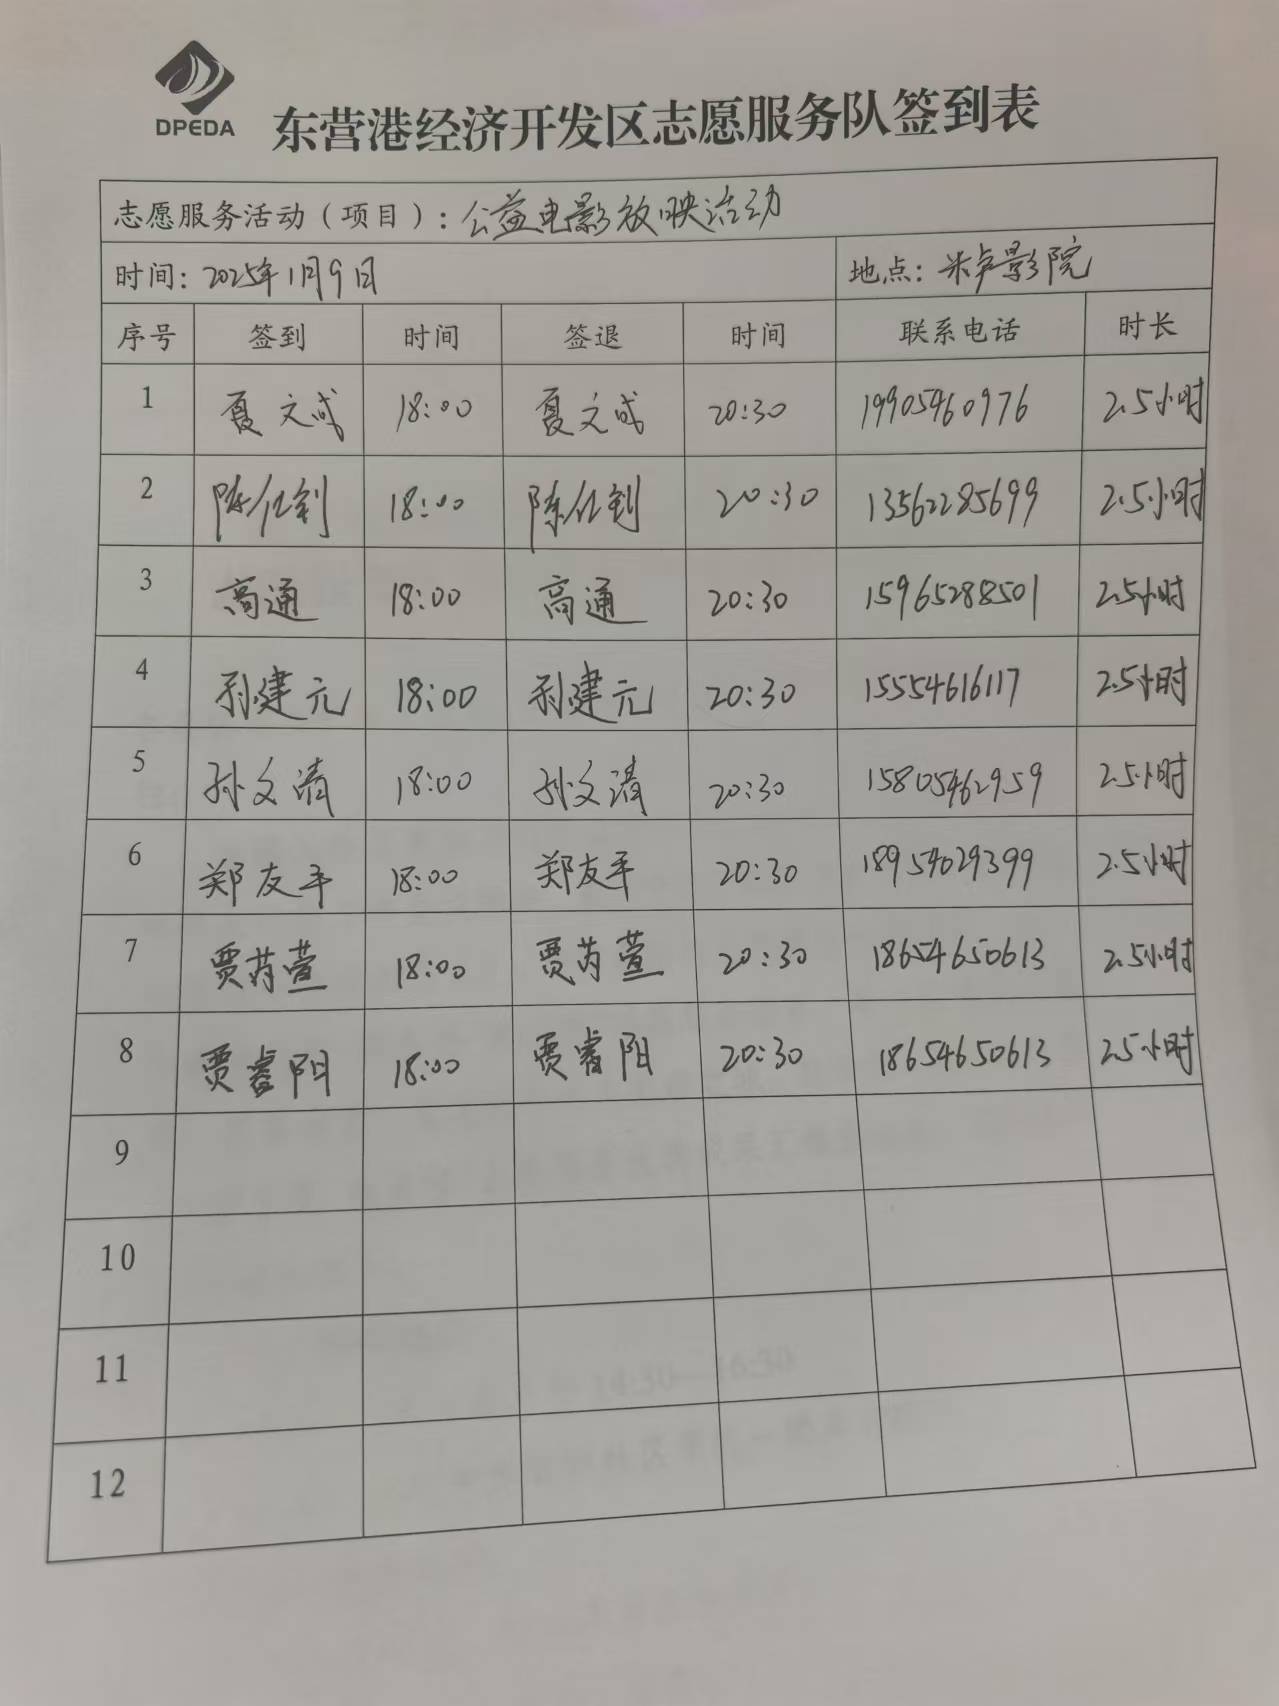 DPEDA
东营港经济开发区志愿服务队签到表
志愿服务活动（项目）：公益电影放映活动
时间：2025年1月9日 地点：米卢影院
序号 签到 时间 签退 时间 联系电话 时长
1 夏文成 18:00 夏文成 20:30 19905460976 2.5小时
2 18:00 20:30 13562285699 2.5小时
3 高通 18:00 高通 20:30 15965288501 2.5小时
4 孙建元 18:00 孙建元 20:30 15554616117 2.5小时
5 孙文清 18:00 孙文清 20:30 15805462959 2.5小时
6 郑友平 18:00 郑友平 20:30 18954029399 2.5小时
7 贾芮萱 18:00 贾芮萱 20:30 18654650613 2.5小时
8 贾睿阳 18:00 贾睿阳 20:30 18654650613 2.5小时
9
10
11
12